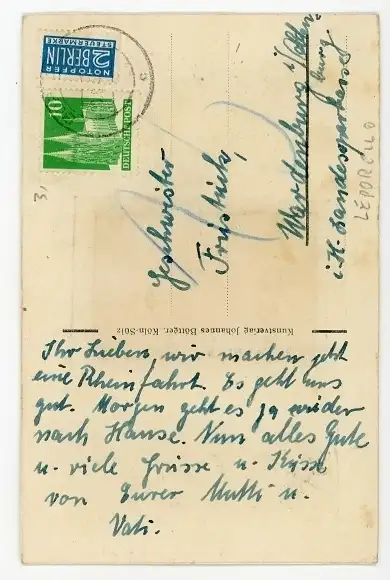 NOTOPFER
2 BERLIN
STEUERMARKE
10
DEUTSCHE POST
Geschwister
Frustück,
Wardenburg i/Olden-
burg
i. H. Landessparkasse
LEPORELLO
3,
Kunstverlag Johannes Böttger, Köln-Sülz
Ihr Lieben, wir machen jetzt
eine Rheinfahrt. Es geht uns
gut. Morgen geht es ja wieder
nach Hause. Nun alles Gute
u. viele Grüsse u. Küsse
von Eurer Mutti u.
Vati.